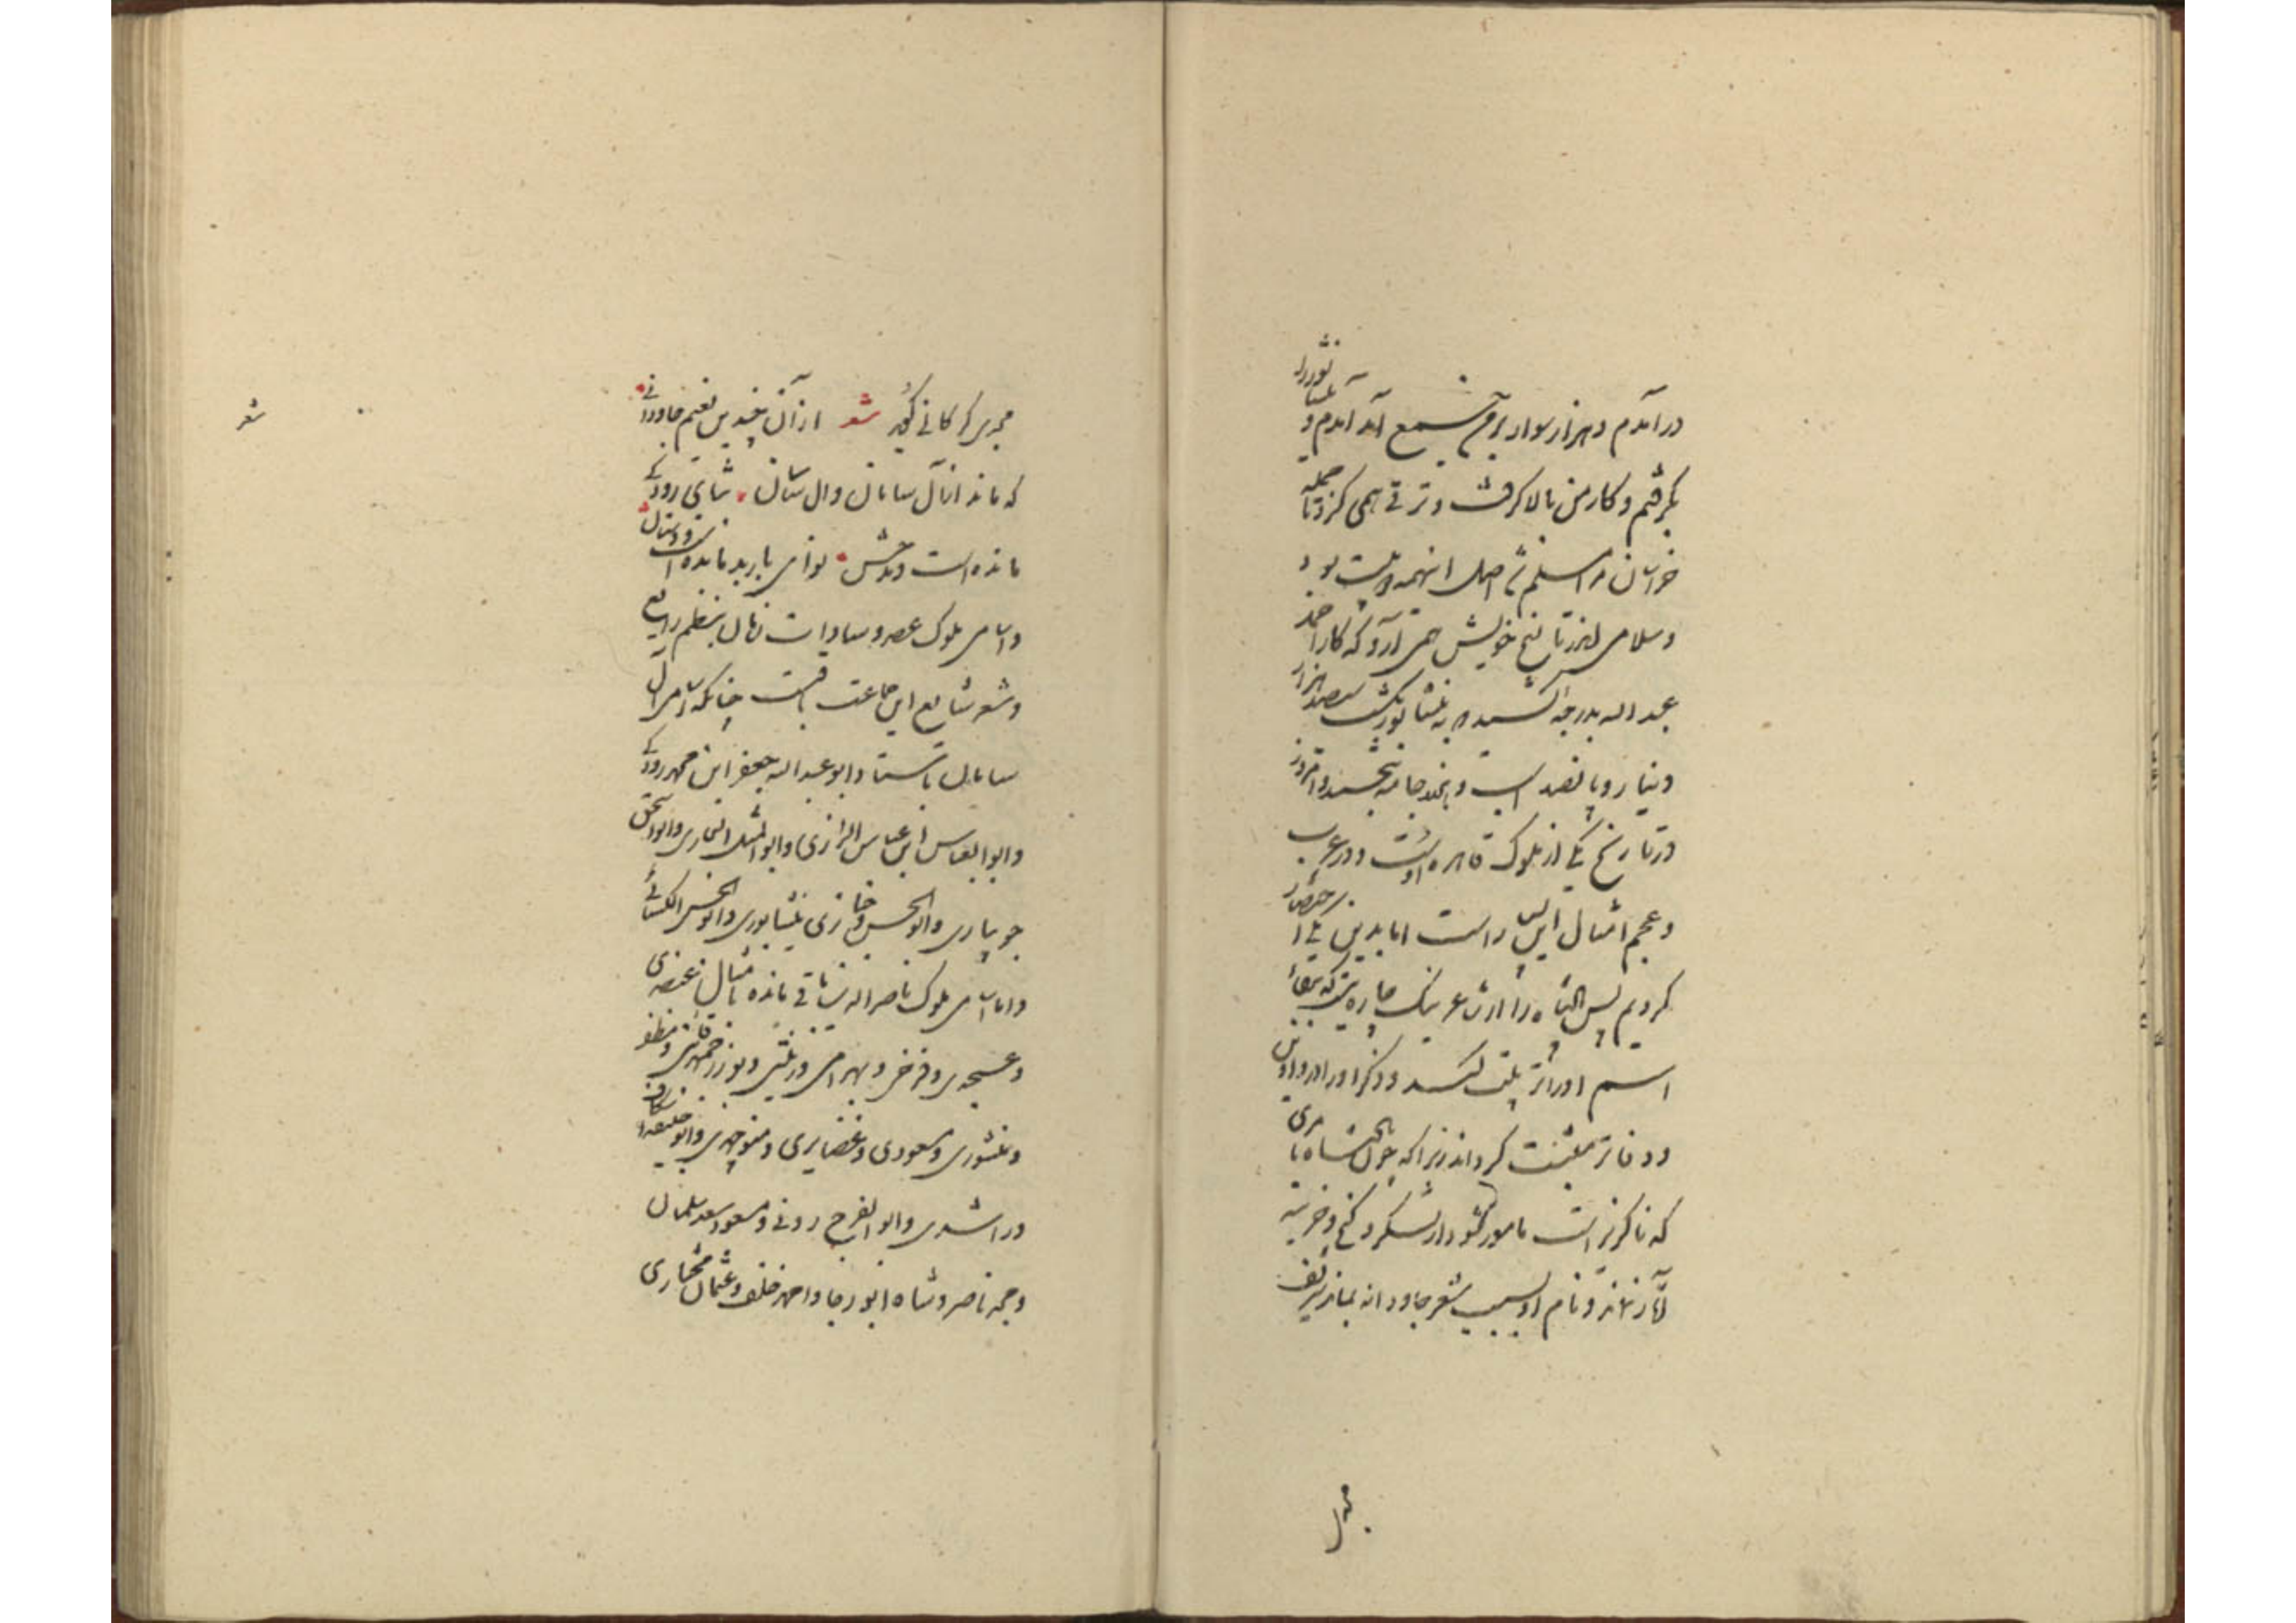 درآمدم و هزار سوار بر من جمع آمد آمدم و نیشابور را
بگرفتم و کار من بالا گرفت و ترقی همی کرد تا جمله
خراسان مرا مسلم شد اصل اینهمه دو بیت بود
و سلامی اندر تاریخ خویش همی آرد که کار احمد
عبد الله بدرجه رسید که به نیشابور یکشب سیصد هزار
دینار و پانصد اسب و هزار جامه ببخشید و امروز
در تاریخ یکی از ملوک قاهره اوست و در عرب
و عجم امثال این بسیار است اما بدین یکی اختصار
کردیم پس پادشاه را از شاعر نیک چاره نیست که بقاء
اسم او را ترتیب کند و ذکر او را در دواوین
و دفاتر مثبت گرداند زیرا که چون پادشاه بامری
که ناگزیر است مامور شود از لشکر و گنج و خزینه
آثار نماند و نام او بسبب شعر جاودانه بماند شریف
مجدی گرگانی گوید شعر از آن چندین نعیم جاودانی
که ماند از آل سامان و آل ساسان ثنای رودکی
مانده است و مدحش نوای باربد مانده است و دستان
و اسامی ملوک عصر و سادات زمان بنظم رایع
و شعر شایع این جماعت باقیست چنانکه اسامی آل
سامان باستاد ابو عبد الله جعفر ابن محمد رودکی
و ابو العباس ابن عباس الرازی و ابو المثل البخاری و ابو اسحق
جویباری و ابو الحسن و خبازی نیشابوری و ابو الحسن الکسائی
و اما اسامی ملوک ناصر الدین باقی مانده بامثال عنصری
و عسجدی و فرخی و بهرامی و زینتی و بوزرجمهر قاینی و مظفر
و منشوری و مسعودی و غضایری و منوچهری و ابو حنیفه اسکاف
و راشدی و ابو الفرج رونی و مسعود سعد سلمان
و مجد ناصر و شاه ابو رجا و احمد خلف و عثمان مختاری
شعر